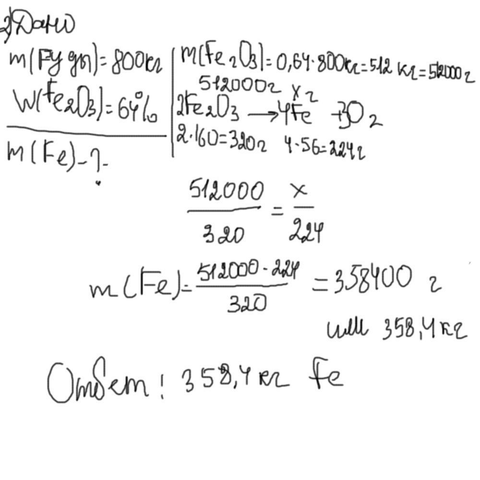 2) Дано
m(Руды)=800кг
W(Fe₂O₃)=64%
m(Fe)-?
m(Fe₂O₃)=0,64·800кг=512 кг=512000г
512000г x г
2Fe₂O₃ → 4Fe + 3O₂
2·160=320г 4·56=224г
512000/320 = x/224
m(Fe)= 512000·224/320 = 358400 г
или 358,4 кг
Ответ: 358,4 кг Fe